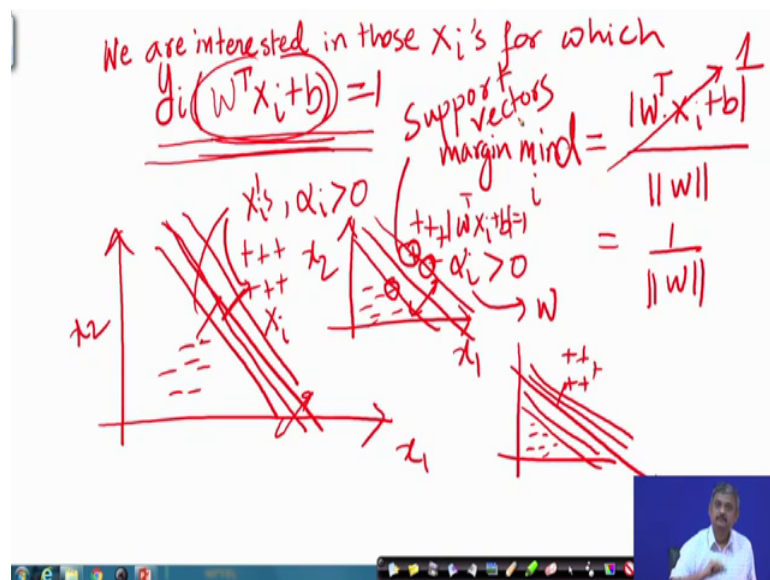 We are interested in those xi's for which
yi(wᵀxi+b)=1
Support
vectors
margin min d = |wᵀxi+b| 1
i
||w||
= 1
||w||
xi's, αi>0
+++
++
xi
x2
x1
+++|wᵀxi+b|=1
αi>0
w
x2
x1
+++
++